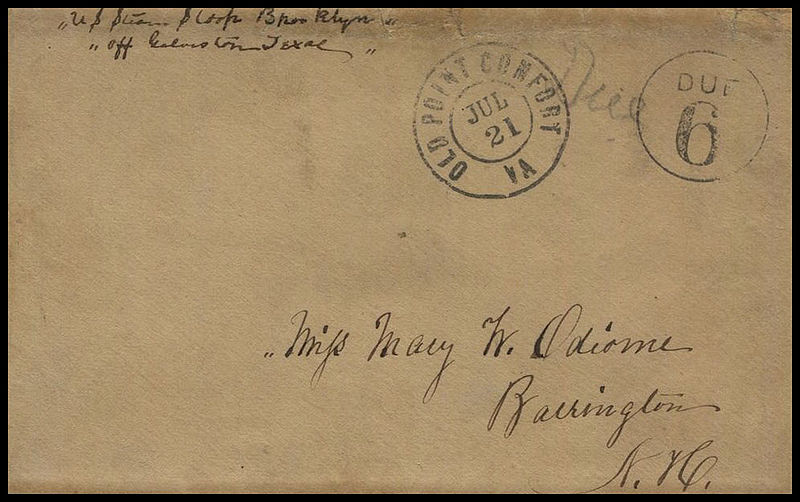 „US Steam Sloop Brooklyn"
„off Galveston Texas"
OLD POINT COMFORT VA
JUL
21
Due
DUE
6
„Miss Mary W. Odiorne
Barrington
N. H.